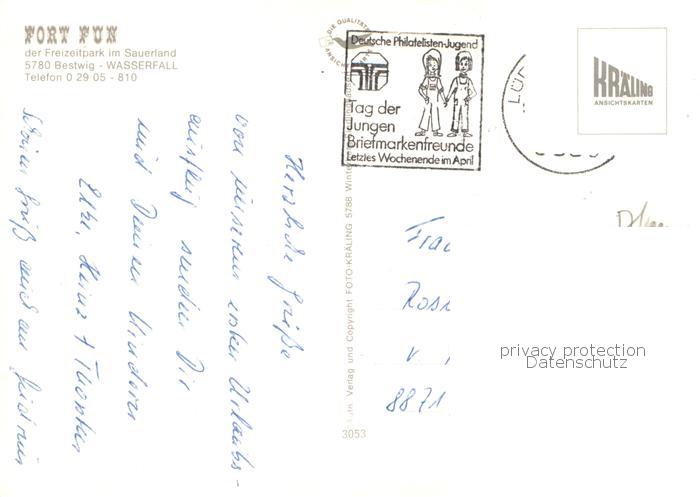 FORT FUN
der Freizeitpark im Sauerland
5780 Bestwig - WASSERFALL
Telefon 0 29 05 - 810
DIE QUALITÄTS
ANSICHTSKARTE
Deutsche Philatelisten-Jugend
Tag der
Jungen
Briefmarkenfreunde
Letztes Wochenende im April
LÜ
KRÄLING
ANSICHTSKARTEN
Herzliche Grüße
von unserem ersten Urlaubs-
ausflug senden Dir
und Deinen Kindern
Elke, Heinz + Thorsten
Schönen Gruß auch an
Verlag und Copyright FOTO-KRÄLING 5788 Winter
3053
Frau
8871
privacy protection
Datenschutz